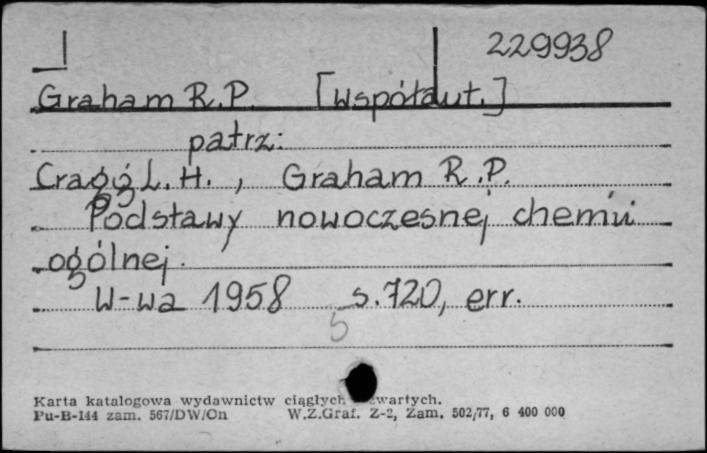 229938
Graham R.P. [współaut.]
patrz:
Cragg L.H., Graham R.P.
Podstawy nowoczesnej chemii
ogólnej.
W-wa 1958 s.720, err.
5
Karta katalogowa wydawnictw ciągłych zwartych.
Pu-B-144 zam. 567/DW/Cn W.Z.Graf. Z-2, Zam. 502/77, 6 400 000